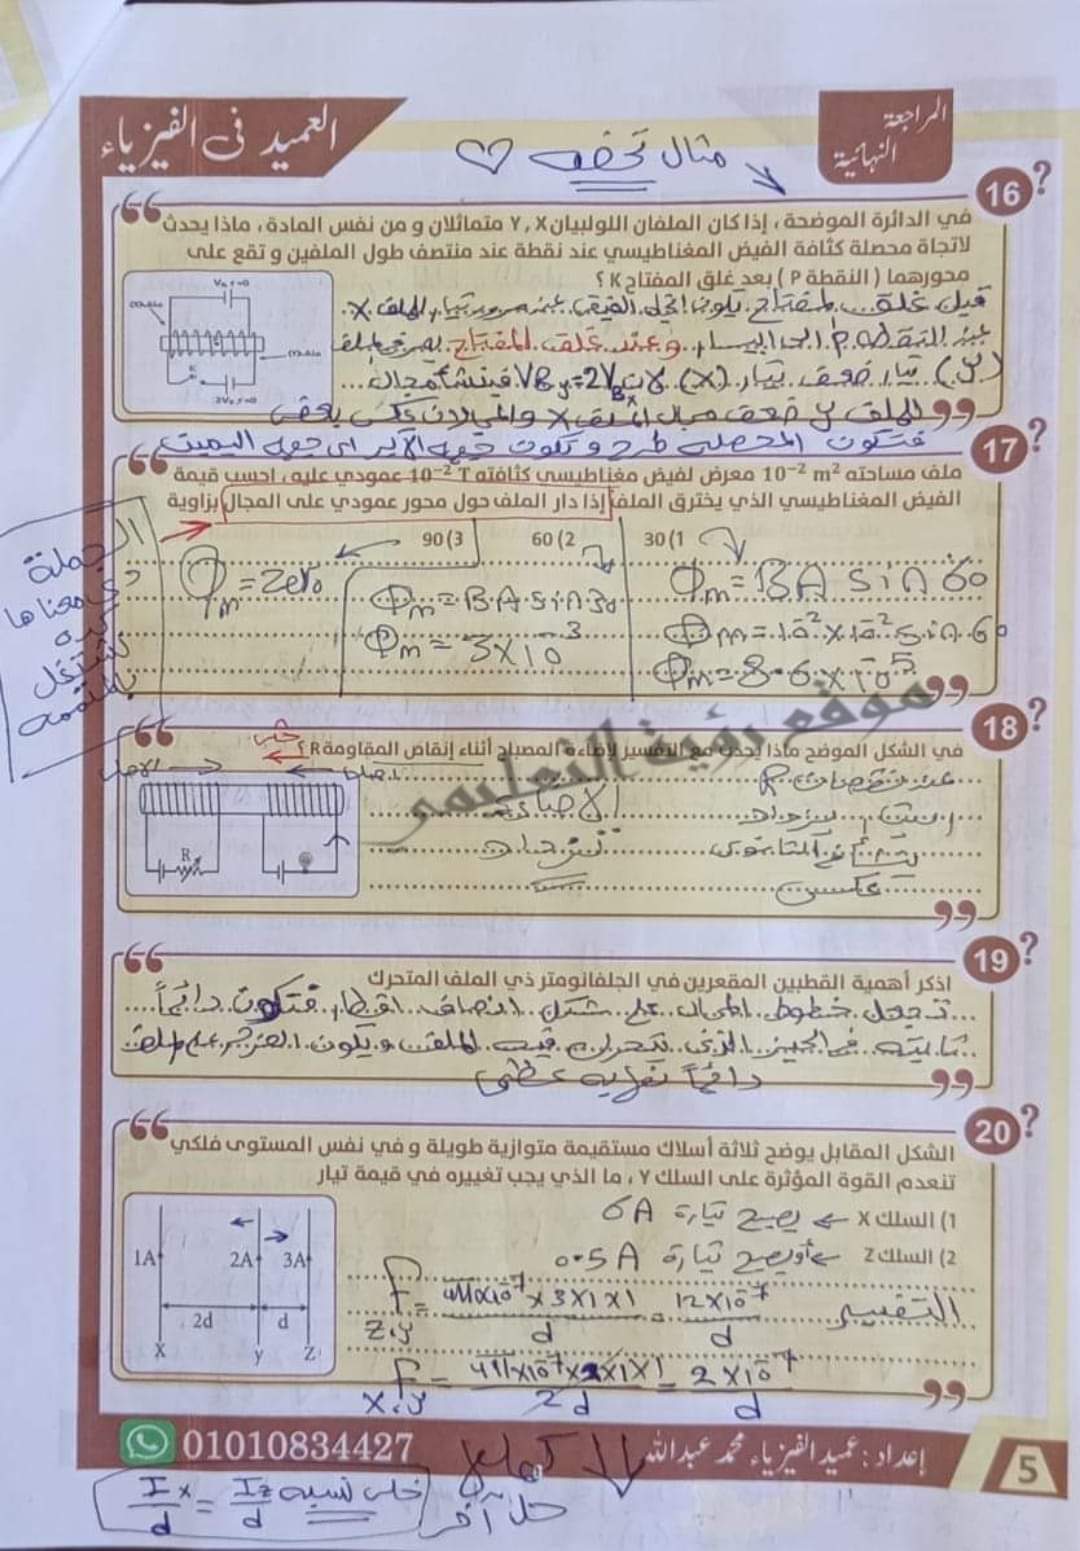 المراجعة
النهائية
العميد في الفيزياء
مثال تحفه
16
في الدائرة الموضحة ، إذا كان الملفان اللولبيان Y , X متماثلان و من نفس المادة ، ماذا يحدث
لاتجاة محصلة كثافة الفيض المغناطيسي عند نقطة عند منتصف طول الملفين و تقع على
محورهما ( النقطة P ) بعد غلق المفتاح K ؟
قبل غلق المفتاح يكون اتجاه الفيض عند مرور تيار الملف X
عند النقطة P الى اليسار وعند غلق المفتاح يمر في الملف
(y) تيار ضعف تيار (x) لان VBy=2VBx فينشأ مجال
للملف y ضعف مجال الملف X والمجالان عكس بعض
فتكون المحصلة طرح و تكون جهه الأكبر اى جهه اليمين
17
ملف مساحته 10⁻² m² معرض لفيض مغناطيسي كثافته 10⁻² T عمودي عليه، احسب قيمة
الفيض المغناطيسي الذي يخترق الملف إذا دار الملف حول محور عمودي على المجال بزاوية
30 (1
60 (2
90 (3
Φm = BA sin 60
Φm = 10⁻² x 10⁻² sin 60
Φm = 8.6 x 10⁻⁵
Φm = B A sin 30
Φm = 5x10⁻³
Φm = Zero
الجملة
دى معناها
كده
نشتغل
بالمتممه
18
في الشكل الموضح ماذا يحدث مع التفسير لإضاءة المصباح أثناء إنقاص المقاومة R ؟
عند نقصان R
تزداد
عكسى
R
موقع رؤية التعليمى
19
اذكر أهمية القطبين المقعرين في الجلفانومتر ذي الملف المتحرك
تجعل خطوط المجال على شكل انصاف اقطار فتكون دائماً
ثابته في الحيز الذى يتحرك فيه الملف ويكون العزم على الملف
دائماً نهايه عظمى
20
الشكل المقابل يوضح ثلاثة أسلاك مستقيمة متوازية طويلة و في نفس المستوى فلكي
تنعدم القوة المؤثرة على السلك Y ، ما الذي يجب تغييره في قيمة تيار
1) السلك X ← يصبح تيارة 6A
2) السلك Z ← أو يصبح تيارة 0.5A
1A 2A 3A
2d d
X y Z
التفسير
F z,y = 4πx10⁻⁷ x 3x1x1 / d = 12x10⁻⁷ / d
F x,y = 4πx10⁻⁷ x 2x1x1 / 2d = 2x10⁻⁷ / d
01010834427
إعداد : عميد الفيزياء محمد عبدالله
5
حل آخر
خلى نسبه Ix/d = Iz/d